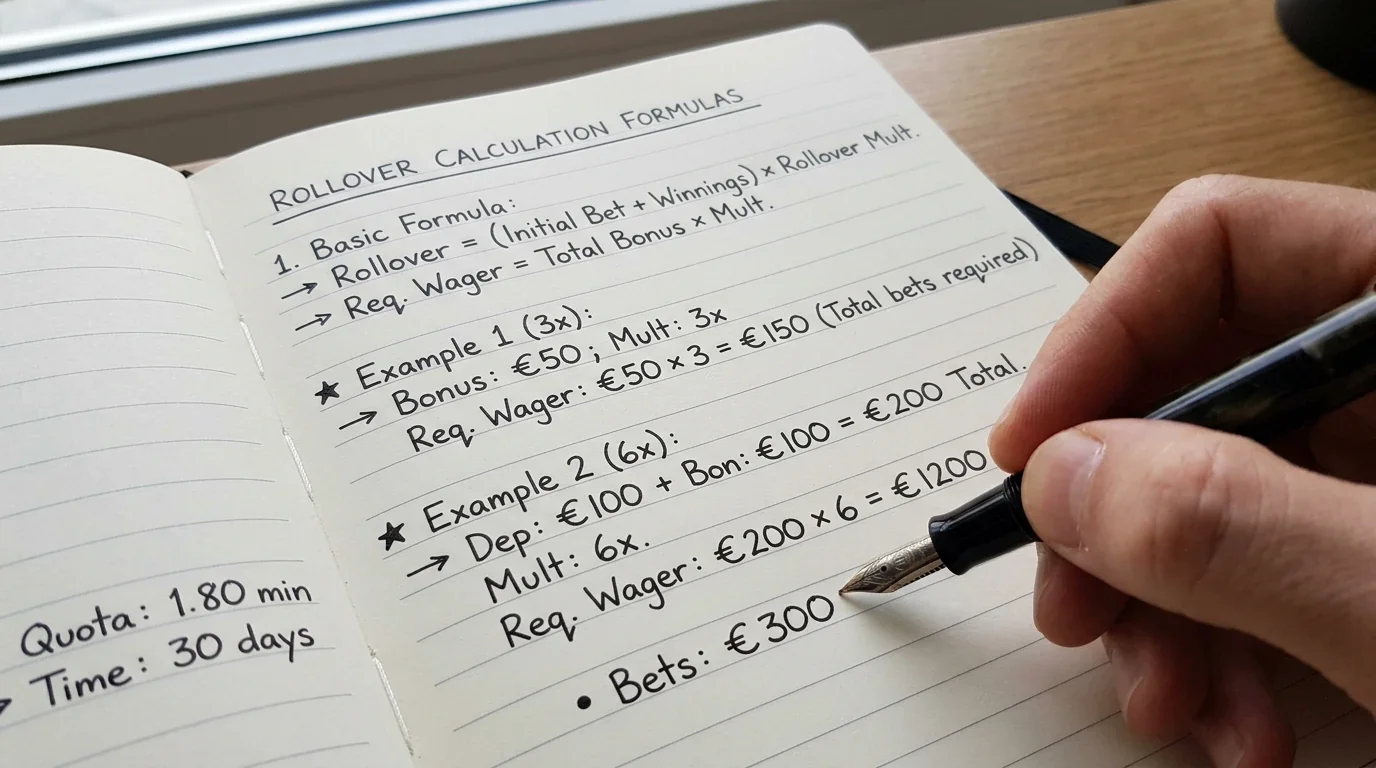 Quota: 1.80 min
Time: 30 days
ROLLOVER CALCULATION FORMULAS
1. Basic Formula:
→ Rollover = (Initial Bet + Winnings) × Rollover Mult.
→ Req. Wager = Total Bonus × Mult.
★ Example 1 (3x):
→ Bonus: €50 ; Mult: 3x
Req. Wager: €50 × 3 = €150 (Total bets required)
★ Example 2 (6x):
→ Dep: €100 + Bon: €100 = €200 Total.
Mult: 6x.
Req. Wager: €200 × 6 = €1200
• Bets: €300